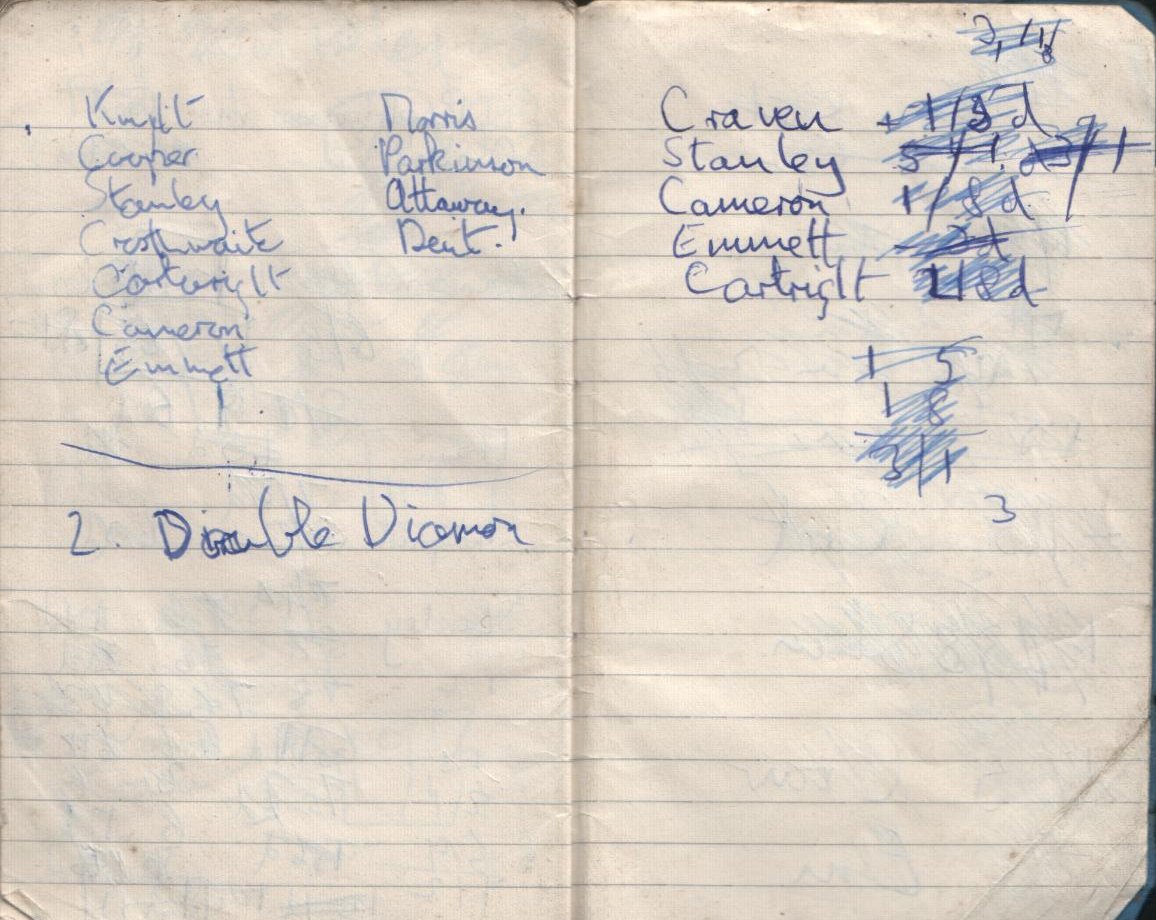 Knight
Cooper
Stanley
Crosthwaite
Cartwright
Cameron
Emmett
Morris
Parkinson
Attaway.
Dent.
2. Double Diamon
3/1
Craven 1/8d
Stanley 3/1d
Cameron 1/8d
Emmett
Cartright 1/8d
1 5
1 8
3/1
3